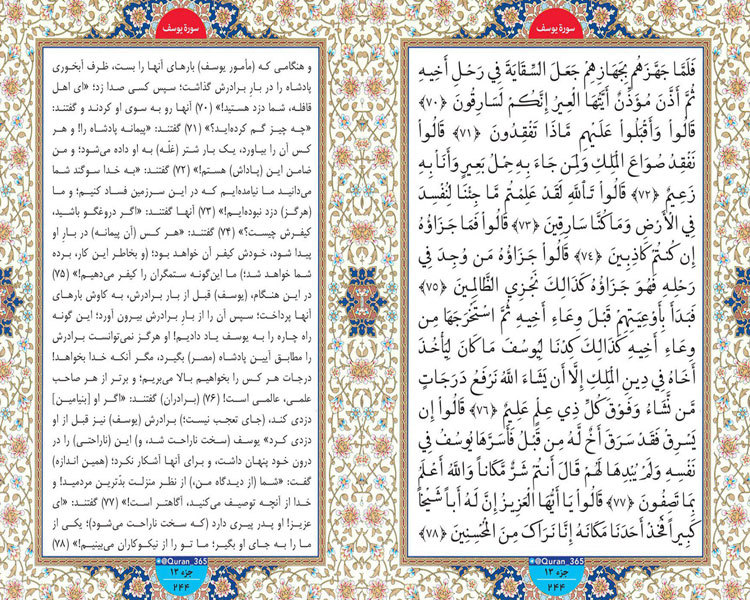 سورة يوسف
فَلَمَّا جَهَّزَهُم بِجَهَازِهِمْ جَعَلَ السِّقَايَةَ فِي رَحْلِ أَخِيهِ
ثُمَّ أَذَّنَ مُؤَذِّنٌ أَيَّتُهَا الْعِيرُ إِنَّكُمْ لَسَارِقُونَ ﴿٧٠﴾
قَالُوا وَأَقْبَلُوا عَلَيْهِم مَّاذَا تَفْقِدُونَ ﴿٧١﴾ قَالُوا
نَفْقِدُ صُوَاعَ الْمَلِكِ وَلِمَن جَاءَ بِهِ حِمْلُ بَعِيرٍ وَأَنَا بِهِ
زَعِيمٌ ﴿٧٢﴾ قَالُوا تَاللَّهِ لَقَدْ عَلِمْتُم مَّا جِئْنَا لِنُفْسِدَ
فِي الْأَرْضِ وَمَا كُنَّا سَارِقِينَ ﴿٧٣﴾ قَالُوا فَمَا جَزَاؤُهُ
إِن كُنتُمْ كَاذِبِينَ ﴿٧٤﴾ قَالُوا جَزَاؤُهُ مَن وُجِدَ فِي
رَحْلِهِ فَهُوَ جَزَاؤُهُ كَذَٰلِكَ نَجْزِي الظَّالِمِينَ ﴿٧٥﴾
فَبَدَأَ بِأَوْعِيَتِهِمْ قَبْلَ وِعَاءِ أَخِيهِ ثُمَّ اسْتَخْرَجَهَا مِن
وِعَاءِ أَخِيهِ كَذَٰلِكَ كِدْنَا لِيُوسُفَ مَا كَانَ لِيَأْخُذَ
أَخَاهُ فِي دِينِ الْمَلِكِ إِلَّا أَن يَشَاءَ اللَّهُ نَرْفَعُ دَرَجَاتٍ
مَّن نَّشَاءُ وَفَوْقَ كُلِّ ذِي عِلْمٍ عَلِيمٌ ﴿٧٦﴾ قَالُوا إِن
يَسْرِقْ فَقَدْ سَرَقَ أَخٌ لَّهُ مِن قَبْلُ فَأَسَرَّهَا يُوسُفُ فِي
نَفْسِهِ وَلَمْ يُبْدِهَا لَهُمْ قَالَ أَنتُمْ شَرٌّ مَّكَاناً وَاللَّهُ أَعْلَمُ
بِمَا تَصِفُونَ ﴿٧٧﴾ قَالُوا يَا أَيُّهَا الْعَزِيزُ إِنَّ لَهُ أَباً شَيْخاً
كَبِيراً فَخُذْ أَحَدَنَا مَكَانَهُ إِنَّا نَرَاكَ مِنَ الْمُحْسِنِينَ ﴿٧٨﴾
@Quran_365
جزء ١٣
٢٤٤
سورة يوسف
و هنگامی که (مأمور یوسف) بارهای آنها را بست، ظرف آبخوری
پادشاه را در بارِ برادرش گذاشت؛ سپس کسی صدا زد؛ «ای اهل
قافله، شما دزد هستید!» (۷۰) آنها رو به سوی او کردند و گفتند:
«چه چیز گم کرده‌اید؟» (۷۱) گفتند: «پیمانه پادشاه را! و هر
کس آن را بیاورد، یک بار شتر (غلّه) به او داده می‌شود؛ و من
ضامن این (پاداش) هستم!» (۷۲) گفتند: «به خدا سوگند شما
می‌دانید ما نیامده‌ایم که در این سرزمین فساد کنیم؛ و ما
(هرگز) دزد نبوده‌ایم!» (۷۳) آنها گفتند: «اگر دروغگو باشید،
کیفرش چیست؟» (۷۴) گفتند: «هر کس (آن پیمانه) در بارِ او
پیدا شود، خودش کیفر آن خواهد بود؛ (و بخاطر این کار، برده
شما خواهد شد؛) ما این‌گونه ستمگران را کیفر می‌دهیم!» (۷۵)
در این هنگام، (یوسف) قبل از بار برادرش، به کاوش بارهای
آنها پرداخت؛ سپس آن را از بارِ برادرش بیرون آورد؛ این گونه
راه چاره را به یوسف یاد دادیم! او هرگز نمی‌توانست برادرش
را مطابق آیین پادشاه (مصر) بگیرد، مگر آنکه خدا بخواهد!
درجات هر کس را بخواهیم بالا می‌بریم؛ و برتر از هر صاحب
علمی، عالمی است! (۷۶) (برادران) گفتند: «اگر او [بنیامین]
دزدی کند، (جای تعجب نیست؛) برادرش (یوسف) نیز قبل از او
دزدی کرد» یوسف (سخت ناراحت شد، و) این (ناراحتی) را در
درون خود پنهان داشت، و برای آنها آشکار نکرد؛ (همین اندازه)
گفت: «شما (از دیدگاه من،) از نظر منزلت بدترین مردمید! و
خدا از آنچه توصیف می‌کنید، آگاهتر است!» (۷۷) گفتند: «ای
عزیز! او پدر پیری دارد (که سخت ناراحت می‌شود)؛ یکی از
ما را به جای او بگیر؛ ما تو را از نیکوکاران می‌بینیم!» (۷۸)
@Quran_365
جزء ۱۳
۲۴۴